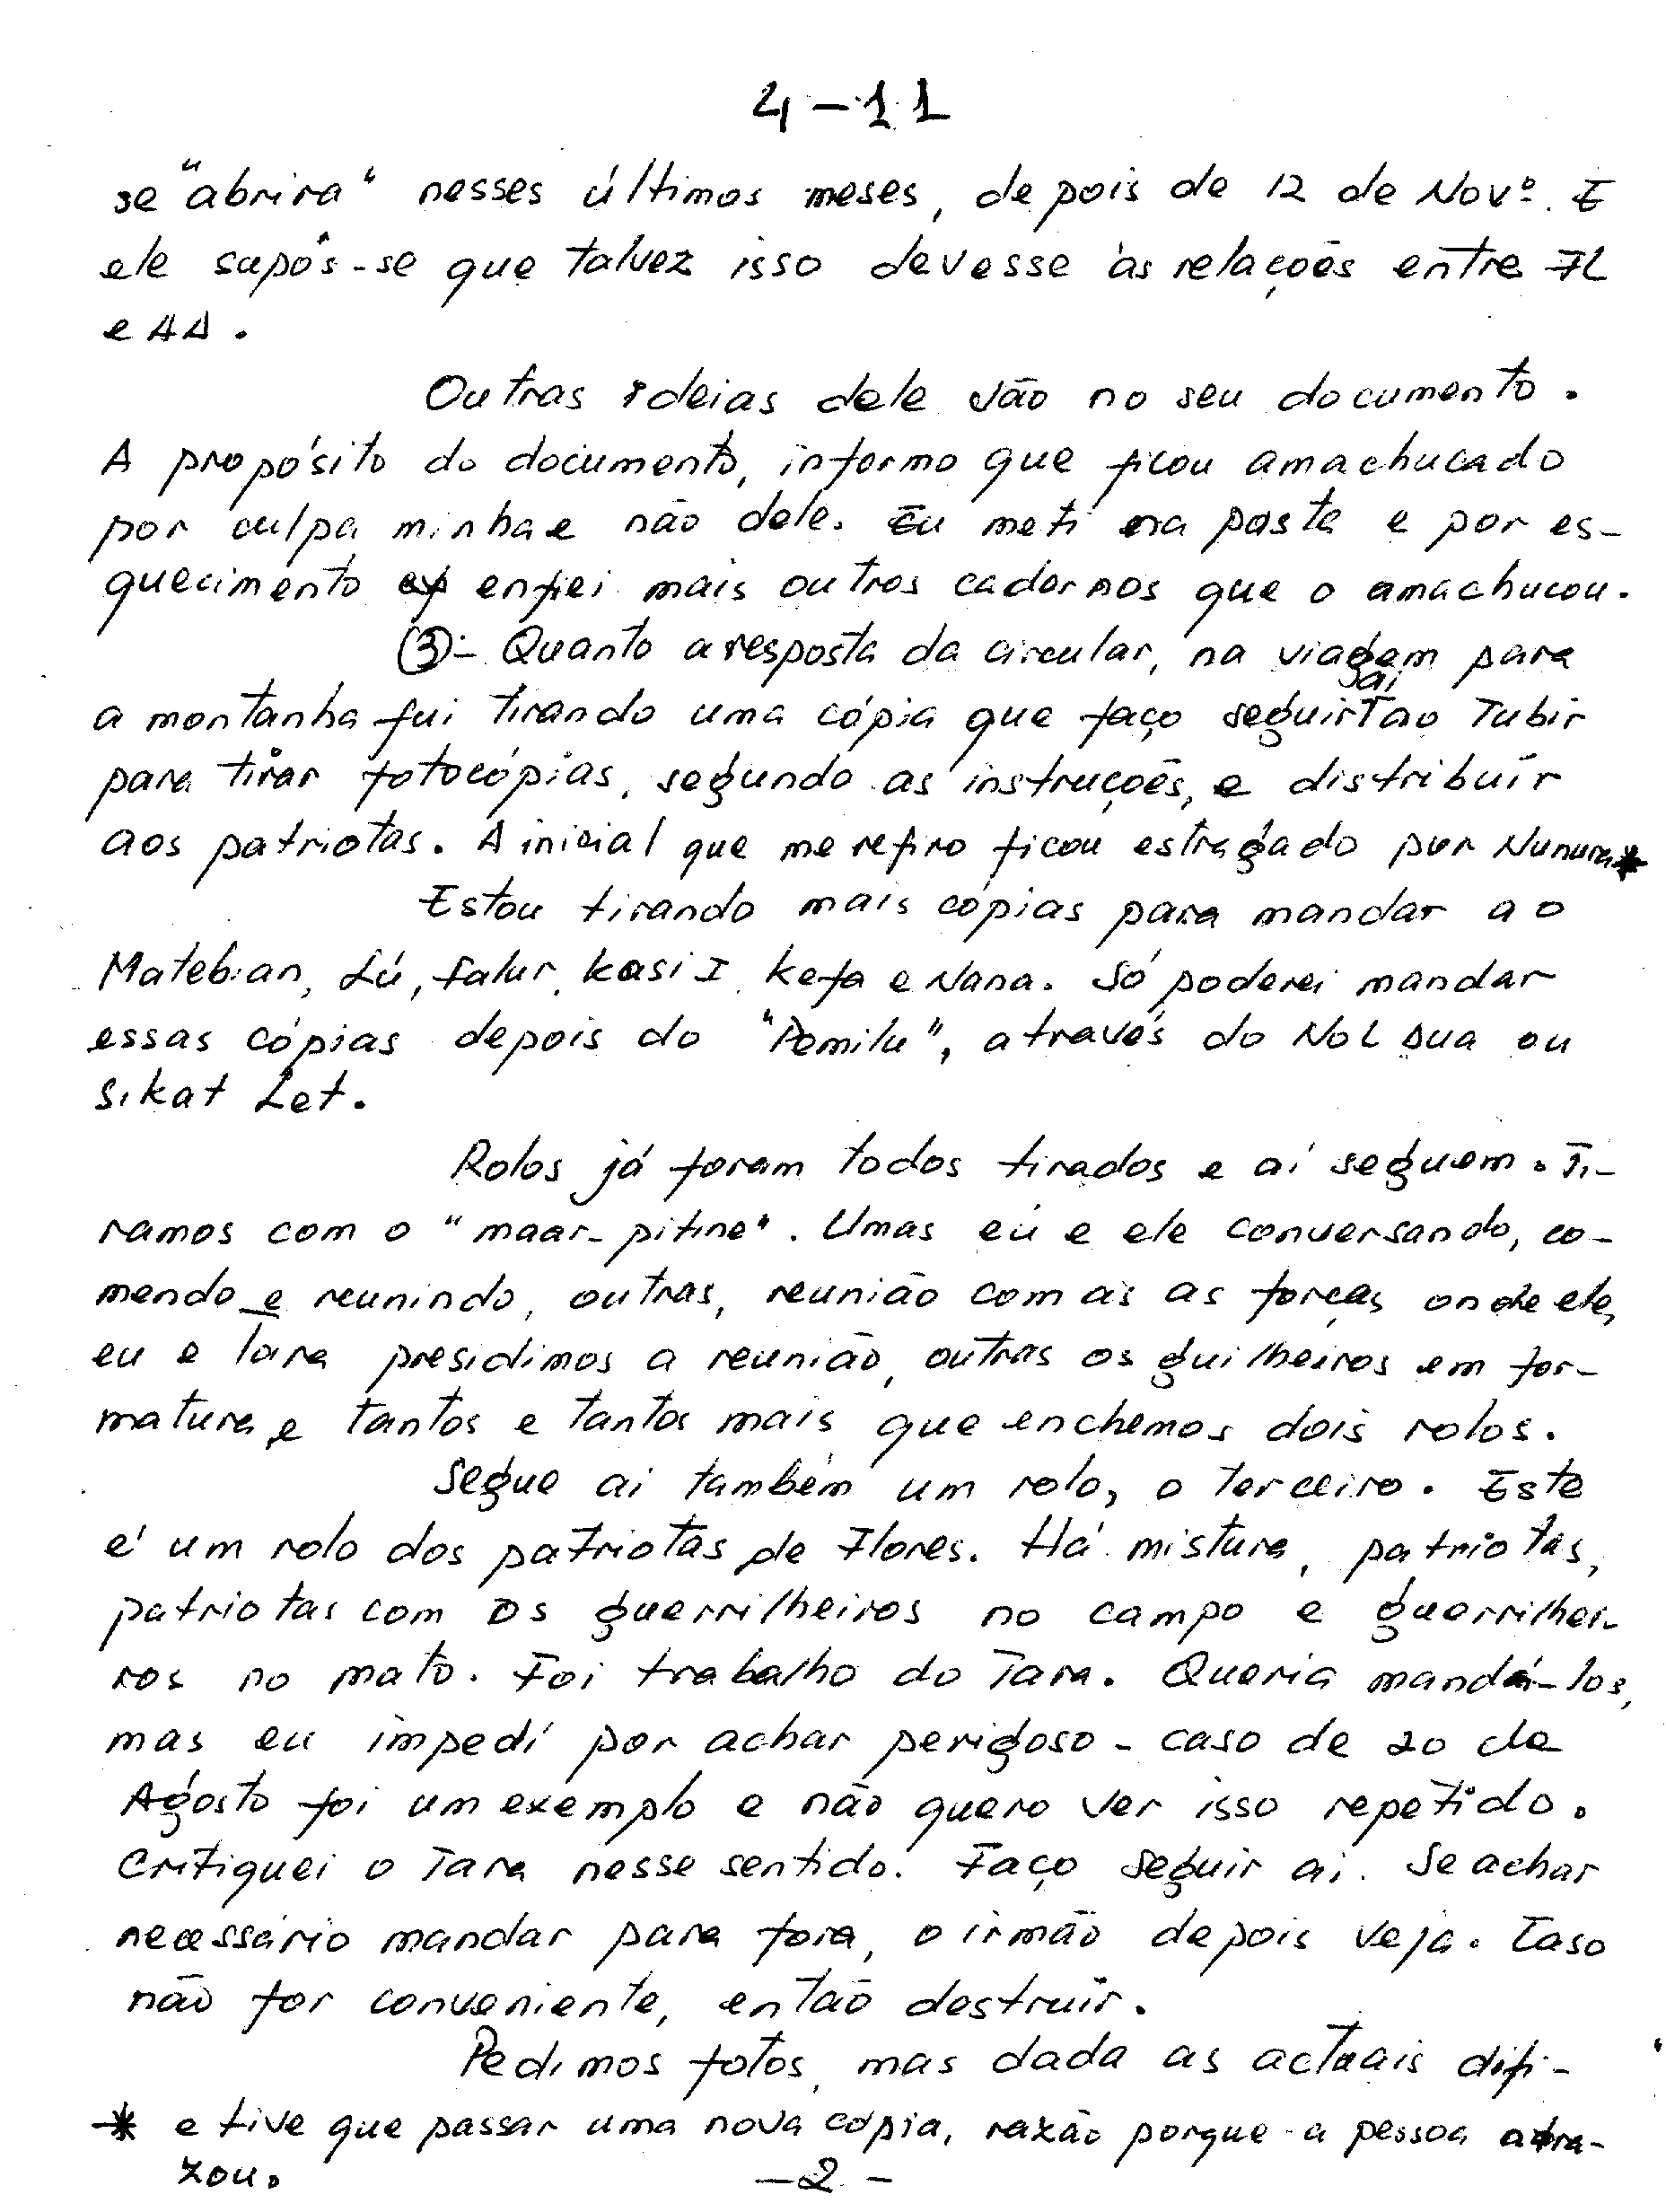 4-11
se "abrira" nesses últimos meses, depois de 12 de Novº. E
ele supôs-se que talvez isso devesse às relações entre FL
e AA.
Outras ideias dele vão no seu documento.
A propósito do documento, informo que ficou amachucado
por culpa minha e não dele. Eu meti na pasta e por es-
quecimento enfiei mais outros cadernos que o amachucou.
(3)- Quanto a resposta da circular, na viagem para
a montanha fui tirando uma cópia que faço seguir aí ao Tubir
para tirar fotocópias, segundo as instruções, e distribuír
aos patriotas. A inicial que me refiro ficou estragado por Nunura*
Estou tirando mais cópias para mandar ao
Matebian, Lú, Falur, Kasi I, Kefa e Nana. Só poderei mandar
essas cópias depois do "Pemilu", através do Nol Dua ou
Sikat Let.
Rolos já foram todos tirados e aí seguem. Ti-
ramos com o "maar-pitine". Umas eu e ele conversando, co-
mendo e reunindo, outras, reunião com as as forças onde ele,
eu e Tara presidimos a reunião, outras os guilheiros em for-
matura, e tantos e tantos mais que enchemos dois rolos.
Segue aí também um rolo, o terceiro. Este
é um rolo dos patriotas de Flores. Há mistura, patriotas,
patriotas com os guerrilheiros no campo e guerrilhei-
ros no mato. Foi trabalho do Tara. Queria mandá-los,
mas eu impedí por achar perigoso - caso de 20 de
Agosto foi um exemplo e não quero ver isso repetido.
Critiquei o Tara nesse sentido. Faço seguir aí. Se achar
necessário mandar para fora, o irmão depois veja. Caso
não for conveniente, então destruir.
Pedimos fotos, mas dada as actuais difi-
* e tive que passar uma nova cópia, razão porque a pessoa atra-
zou.
-2-